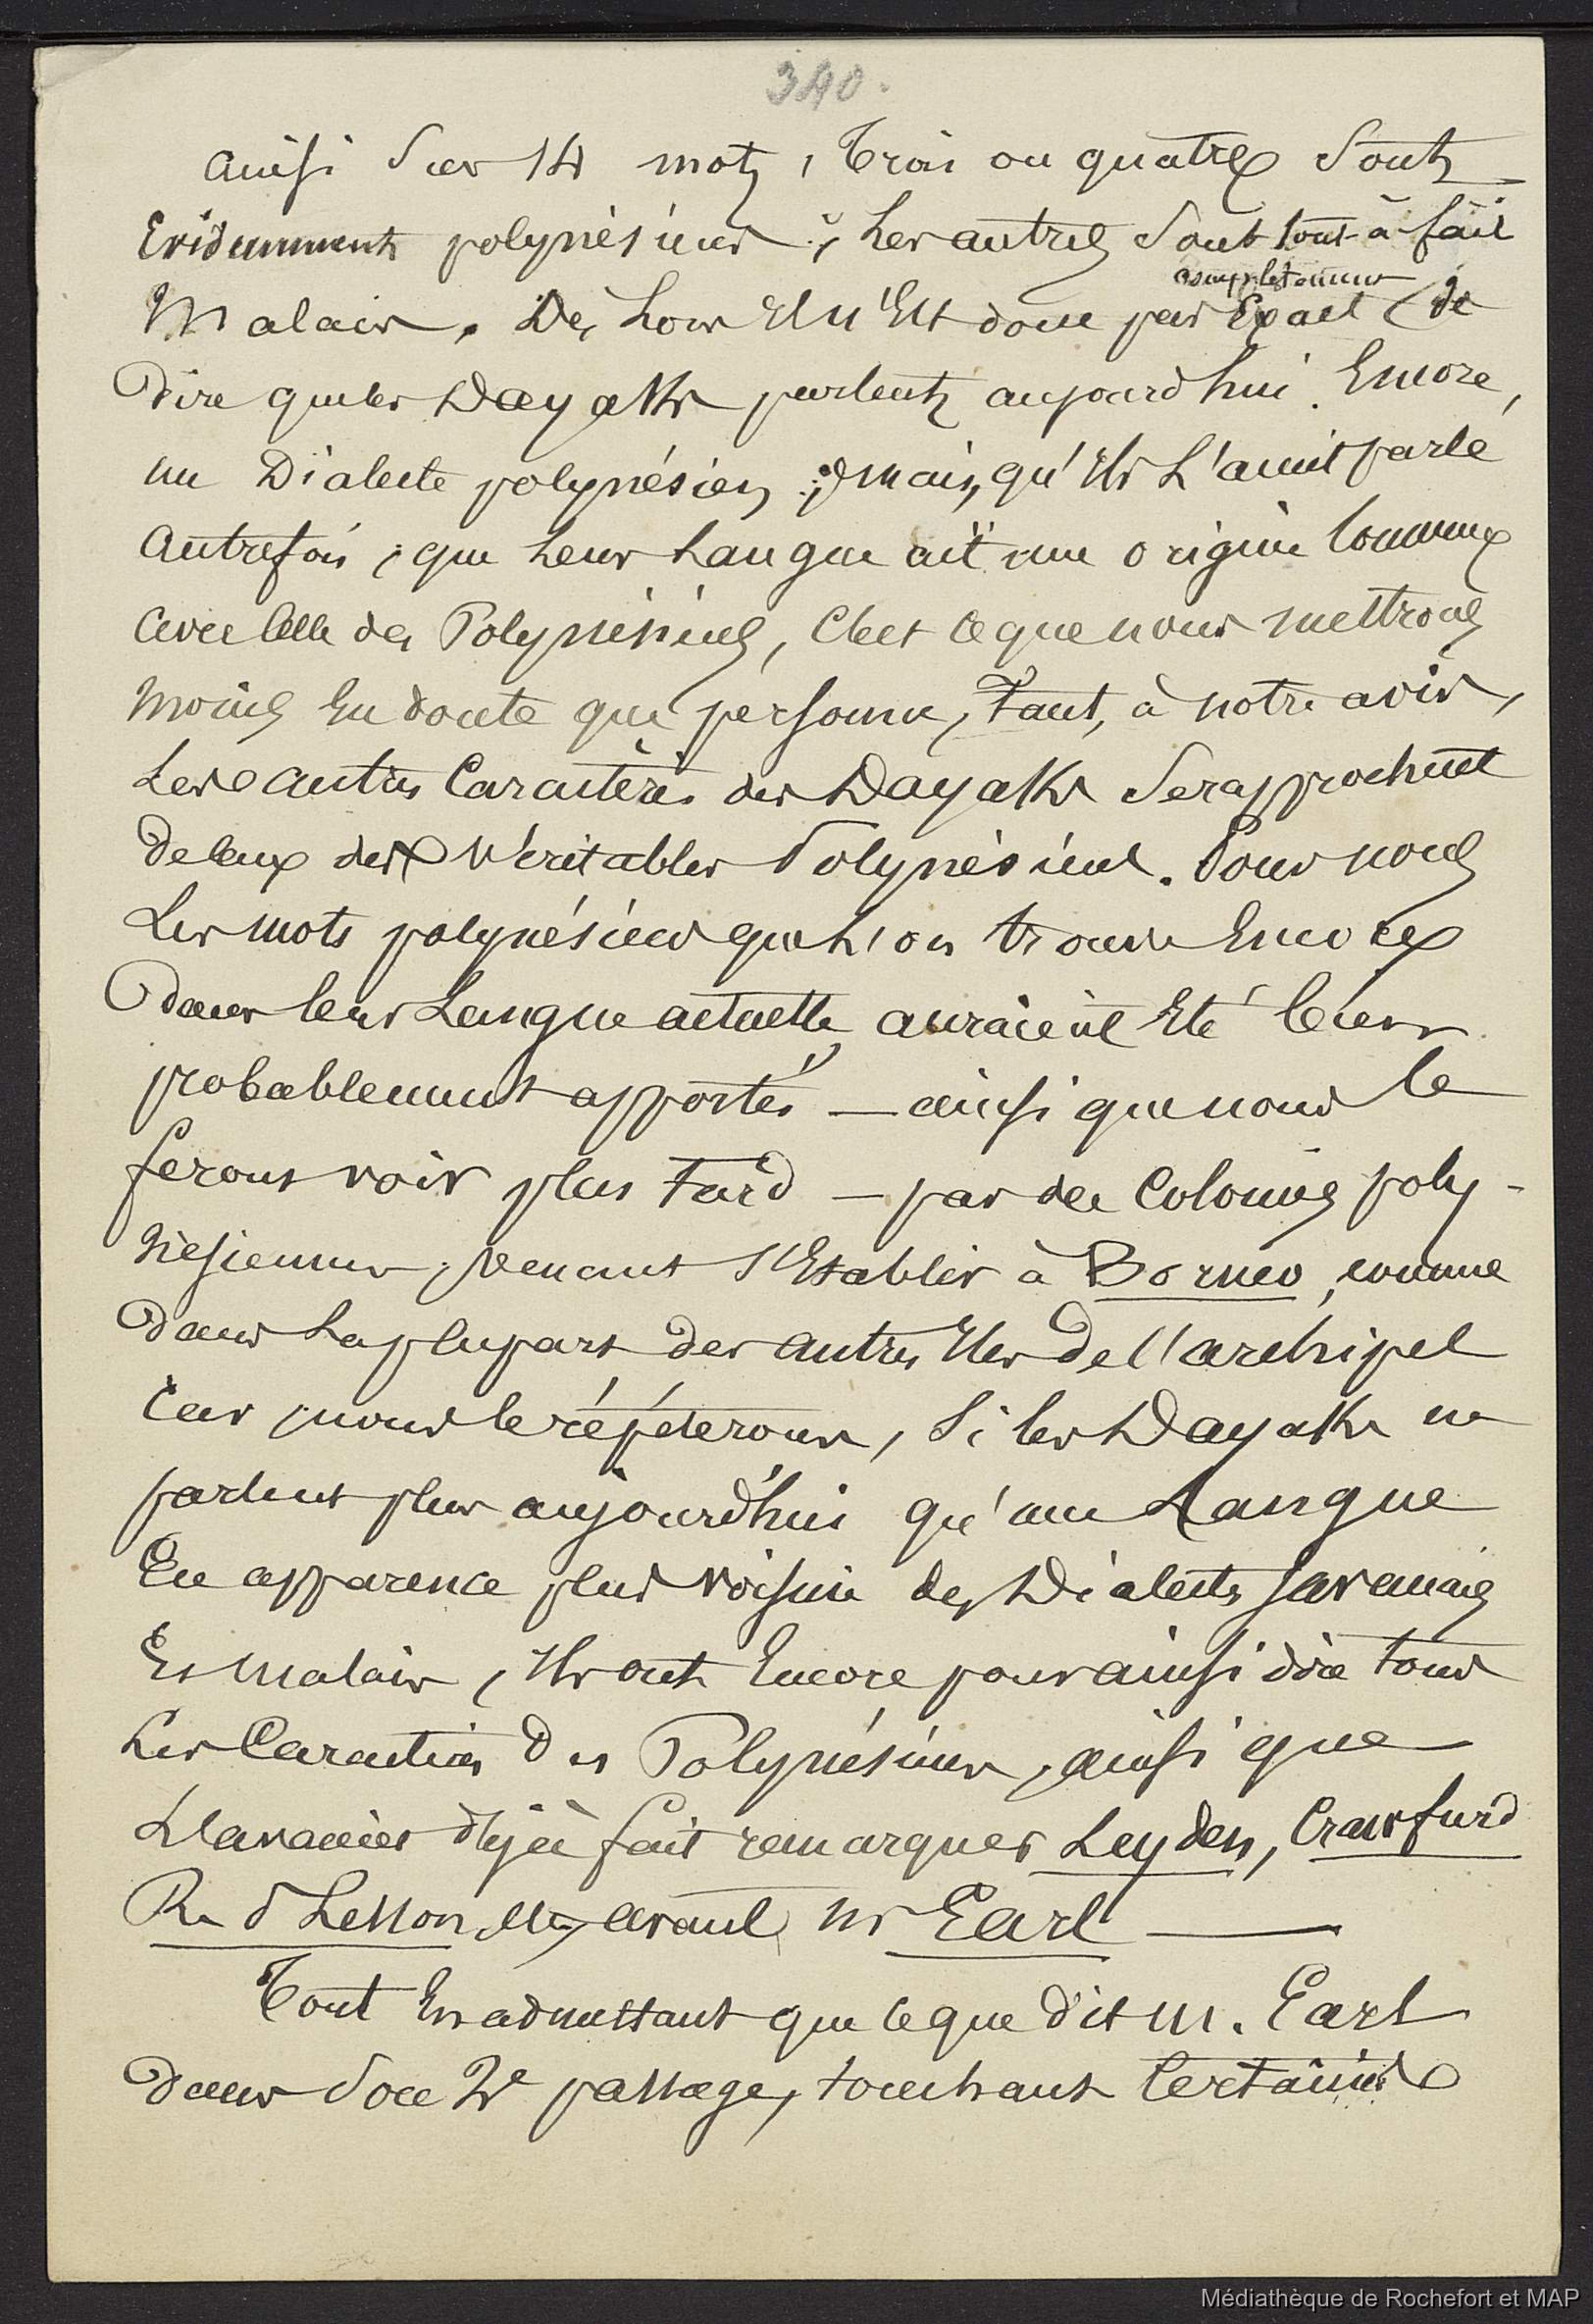 340.
Ainsi sur 14 mots, trois ou quatre sont
Evidemment polynésiens; les autres sont tout-à-fait
complètement
Malais. Dès lors il n'est donc pas Exact de
dire que les Dayaks parlent aujourd'hui Encore,
un Dialecte polynésien; mais, qu'ils l'aient parlé
autrefois, que leur langue ait une origine commune
avec celle des Polynésiens, c'est ce que nous mettrons
moins en doute que personne, tant, à notre avis,
les autres Caractères des Dayaks se rapprochent
de ceux des véritables Polynésiens. Pour nous
les mots polynésiens que l'on trouve Encore
dans leur Langue actuelle, auraient Eté
probablement apportés — ainsi que nous le
ferons voir plus tard — par des Colonies poly-
nésiennes, venant s'Etablir à Bornéo, comme
dans la plupart des autres Iles de l'archipel
Car, nous le répéterons, si les Dayaks ne
parlent plus aujourd'hui qu'une Langue
En apparence plus voisine des Dialectes Javanais
Et Malais, ils ont Encore pour ainsi dire tous
les Caractères des Polynésiens, ainsi que
l'avaient déjà fait remarquer Leyden, Crawfurd
R. d Lesson, etc, avant Mr Earl —
Tout En admettant que ce que dit M. Earl
dans son 2e passage, touchant Certains
Médiathèque de Rochefort et MAP